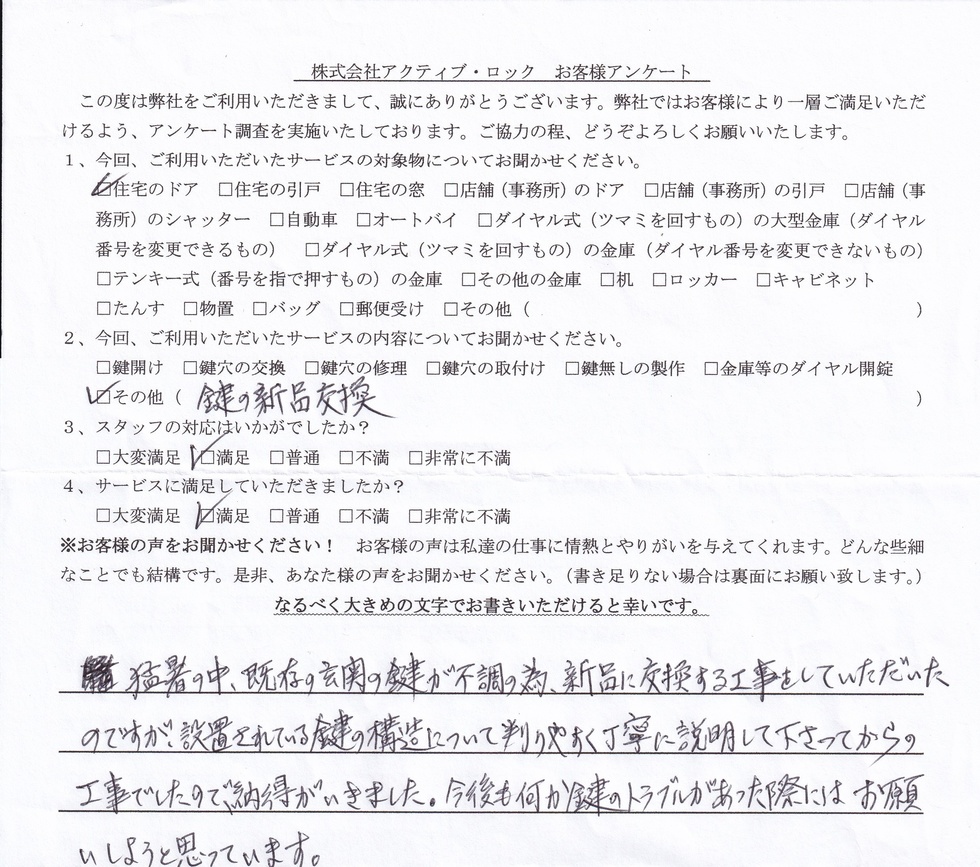 株式会社アクティブ・ロック　お客様アンケート
この度は弊社をご利用いただきまして、誠にありがとうございます。弊社ではお客様により一層ご満足いただ
けるよう、アンケート調査を実施いたしております。ご協力の程、どうぞよろしくお願いいたします。
１、今回、ご利用いただいたサービスの対象物についてお聞かせください。
☑住宅のドア　□住宅の引戸　□住宅の窓　□店舗（事務所）のドア　□店舗（事務所）の引戸　□店舗（事
務所）のシャッター　□自動車　□オートバイ　□ダイヤル式（ツマミを回すもの）の大型金庫（ダイヤル
番号を変更できるもの）　□ダイヤル式（ツマミを回すもの）の金庫（ダイヤル番号を変更できないもの）
□テンキー式（番号を指で押すもの）の金庫　□その他の金庫　□机　□ロッカー　□キャビネット
□たんす　□物置　□バッグ　□郵便受け　□その他（　）
２、今回、ご利用いただいたサービスの内容についてお聞かせください。
□鍵開け　□鍵穴の交換　□鍵穴の修理　□鍵穴の取付け　□鍵無しの製作　□金庫等のダイヤル開錠
☑その他（　鍵の新品交換　）
３、スタッフの対応はいかがでしたか？
□大変満足　☑満足　□普通　□不満　□非常に不満
４、サービスに満足していただきましたか？
□大変満足　☑満足　□普通　□不満　□非常に不満
※お客様の声をお聞かせください！　お客様の声は私達の仕事に情熱とやりがいを与えてくれます。どんな些細
なことでも結構です。是非、あなた様の声をお聞かせください。（書き足りない場合は裏面にお願い致します。）
なるべく大きめの文字でお書きいただけると幸いです。
猛暑の中、既存の玄関の鍵が不調の為、新品に交換する工事をしていただいた
のですが、設置されている鍵の構造について判りやすく丁寧に説明して下さってからの
工事でしたので、納得がいきました。今後も何か鍵のトラブルがあった際にはお願
いしようと思っています。